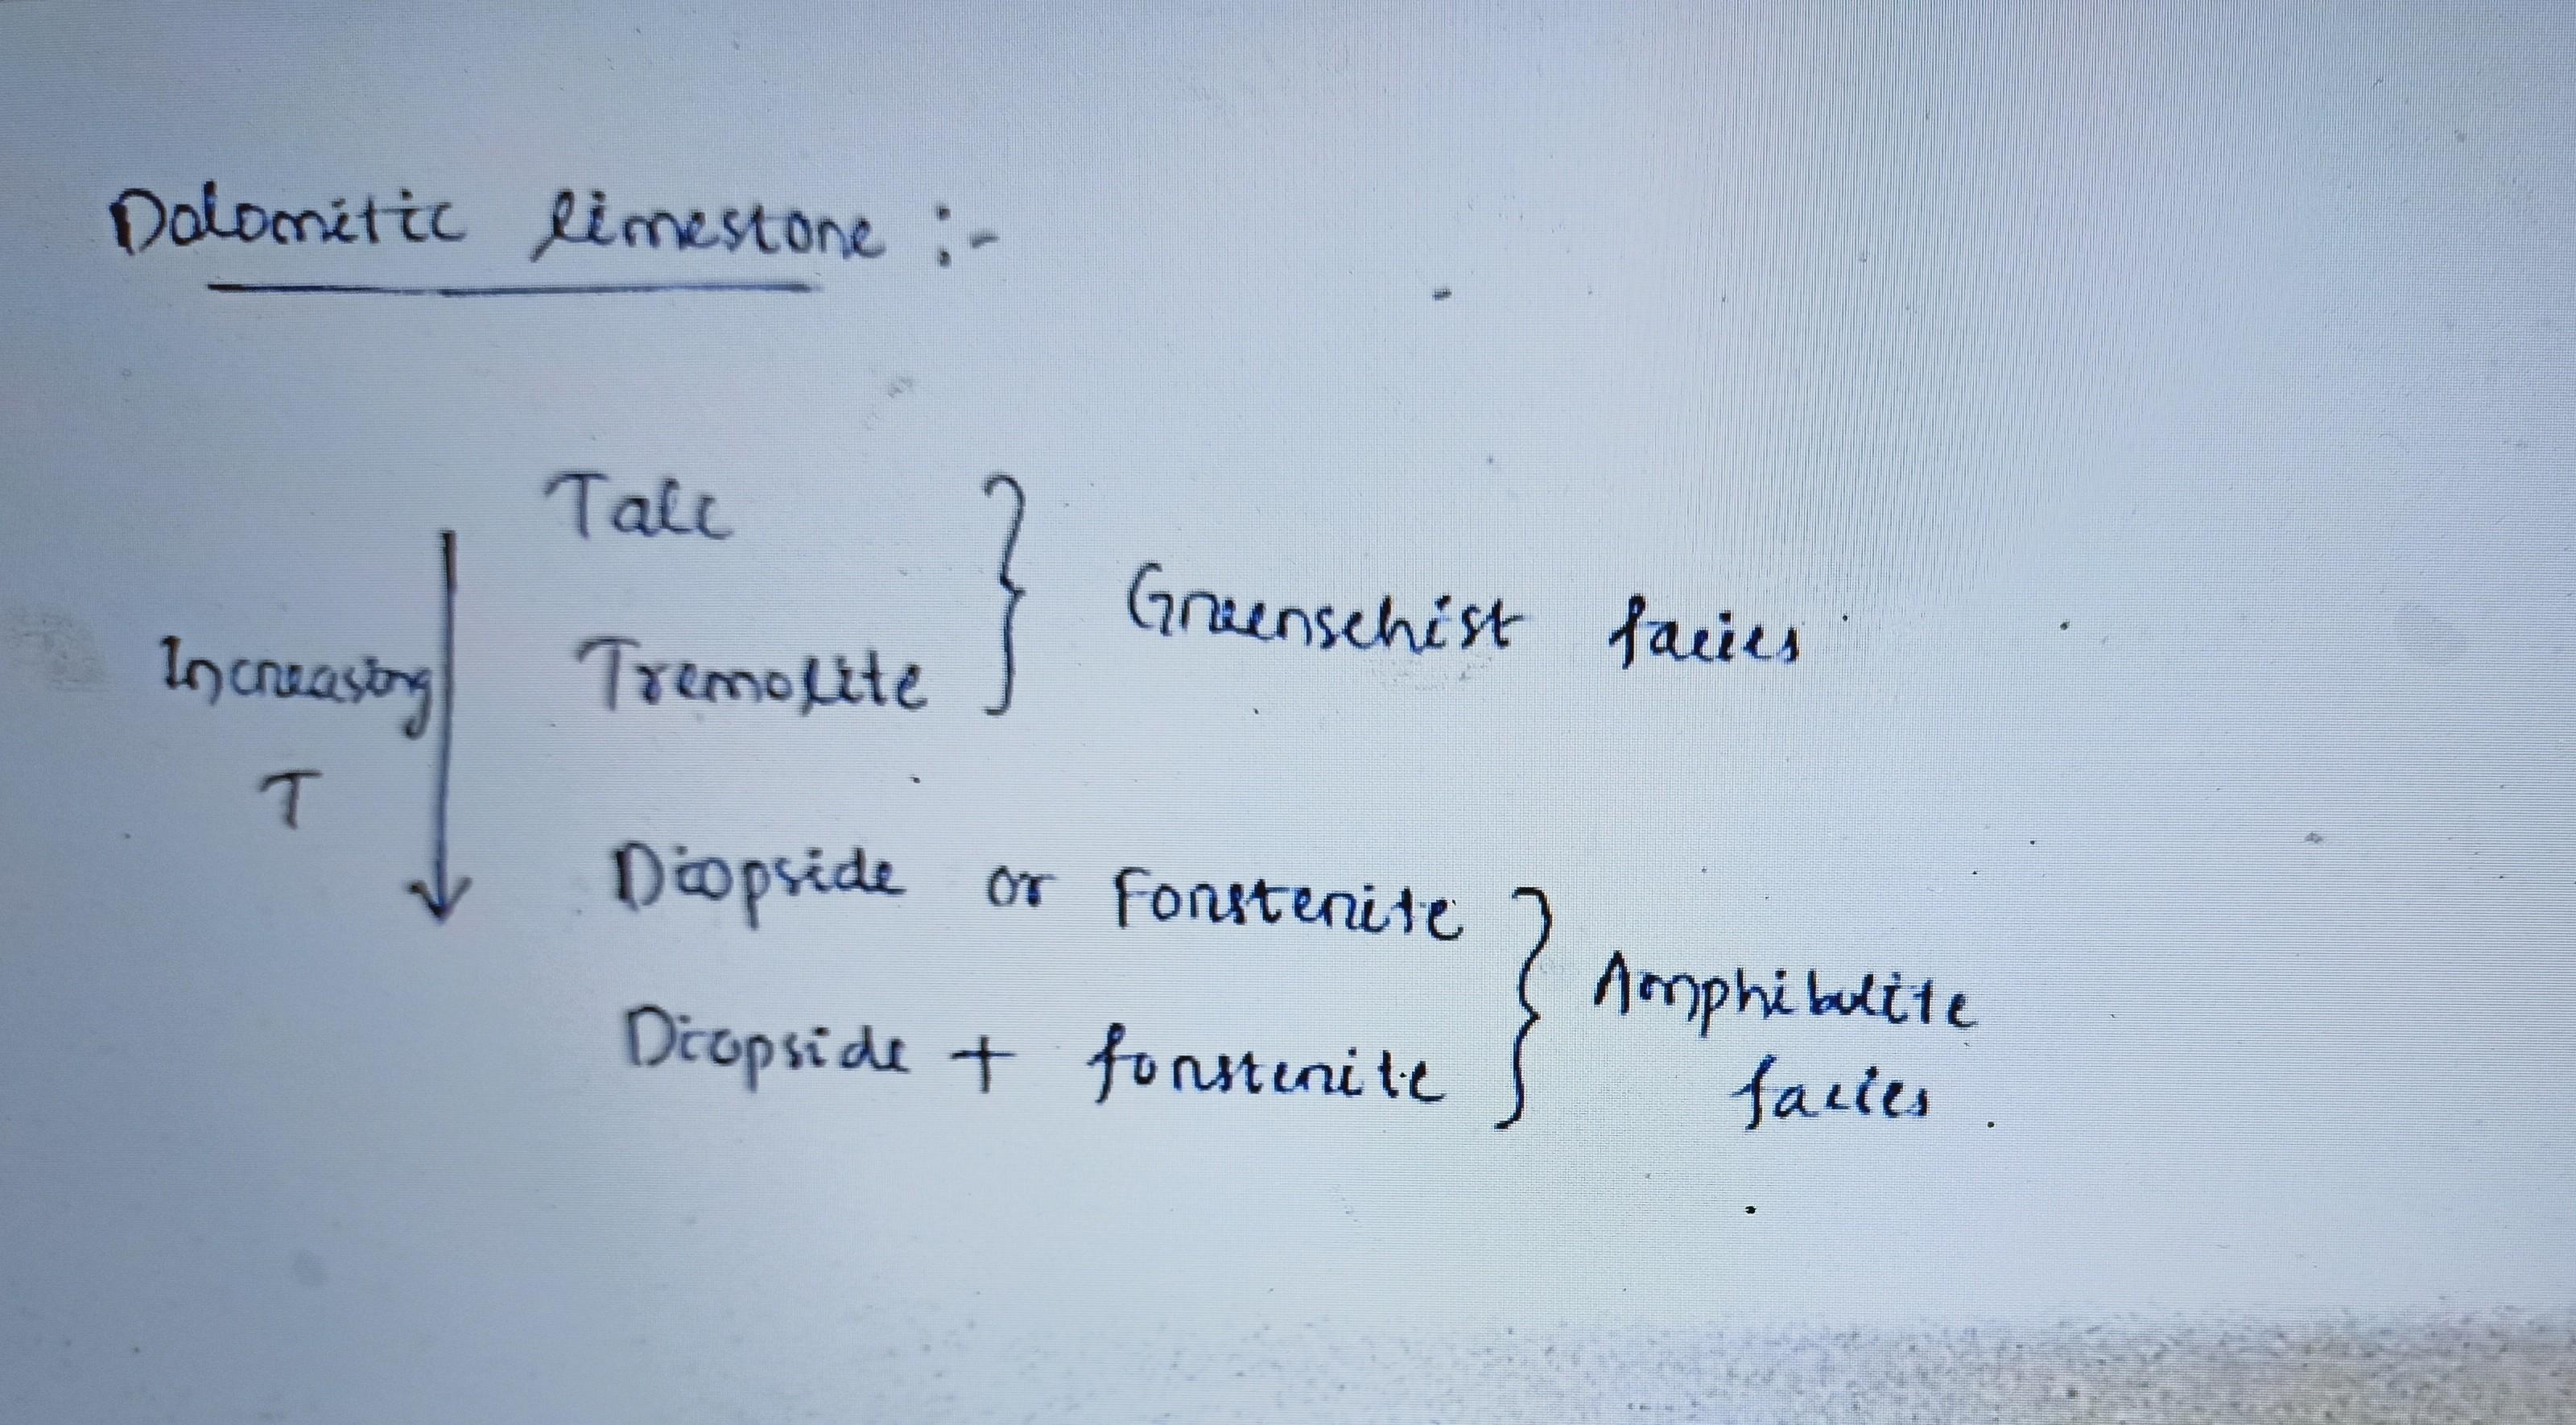 Dolomitic limestone :-
Talc
Tremolite
Greenschist facies
Increasing
T
Diopside or Forsterite
Diopside + forsterite
Amphibolite
facies.